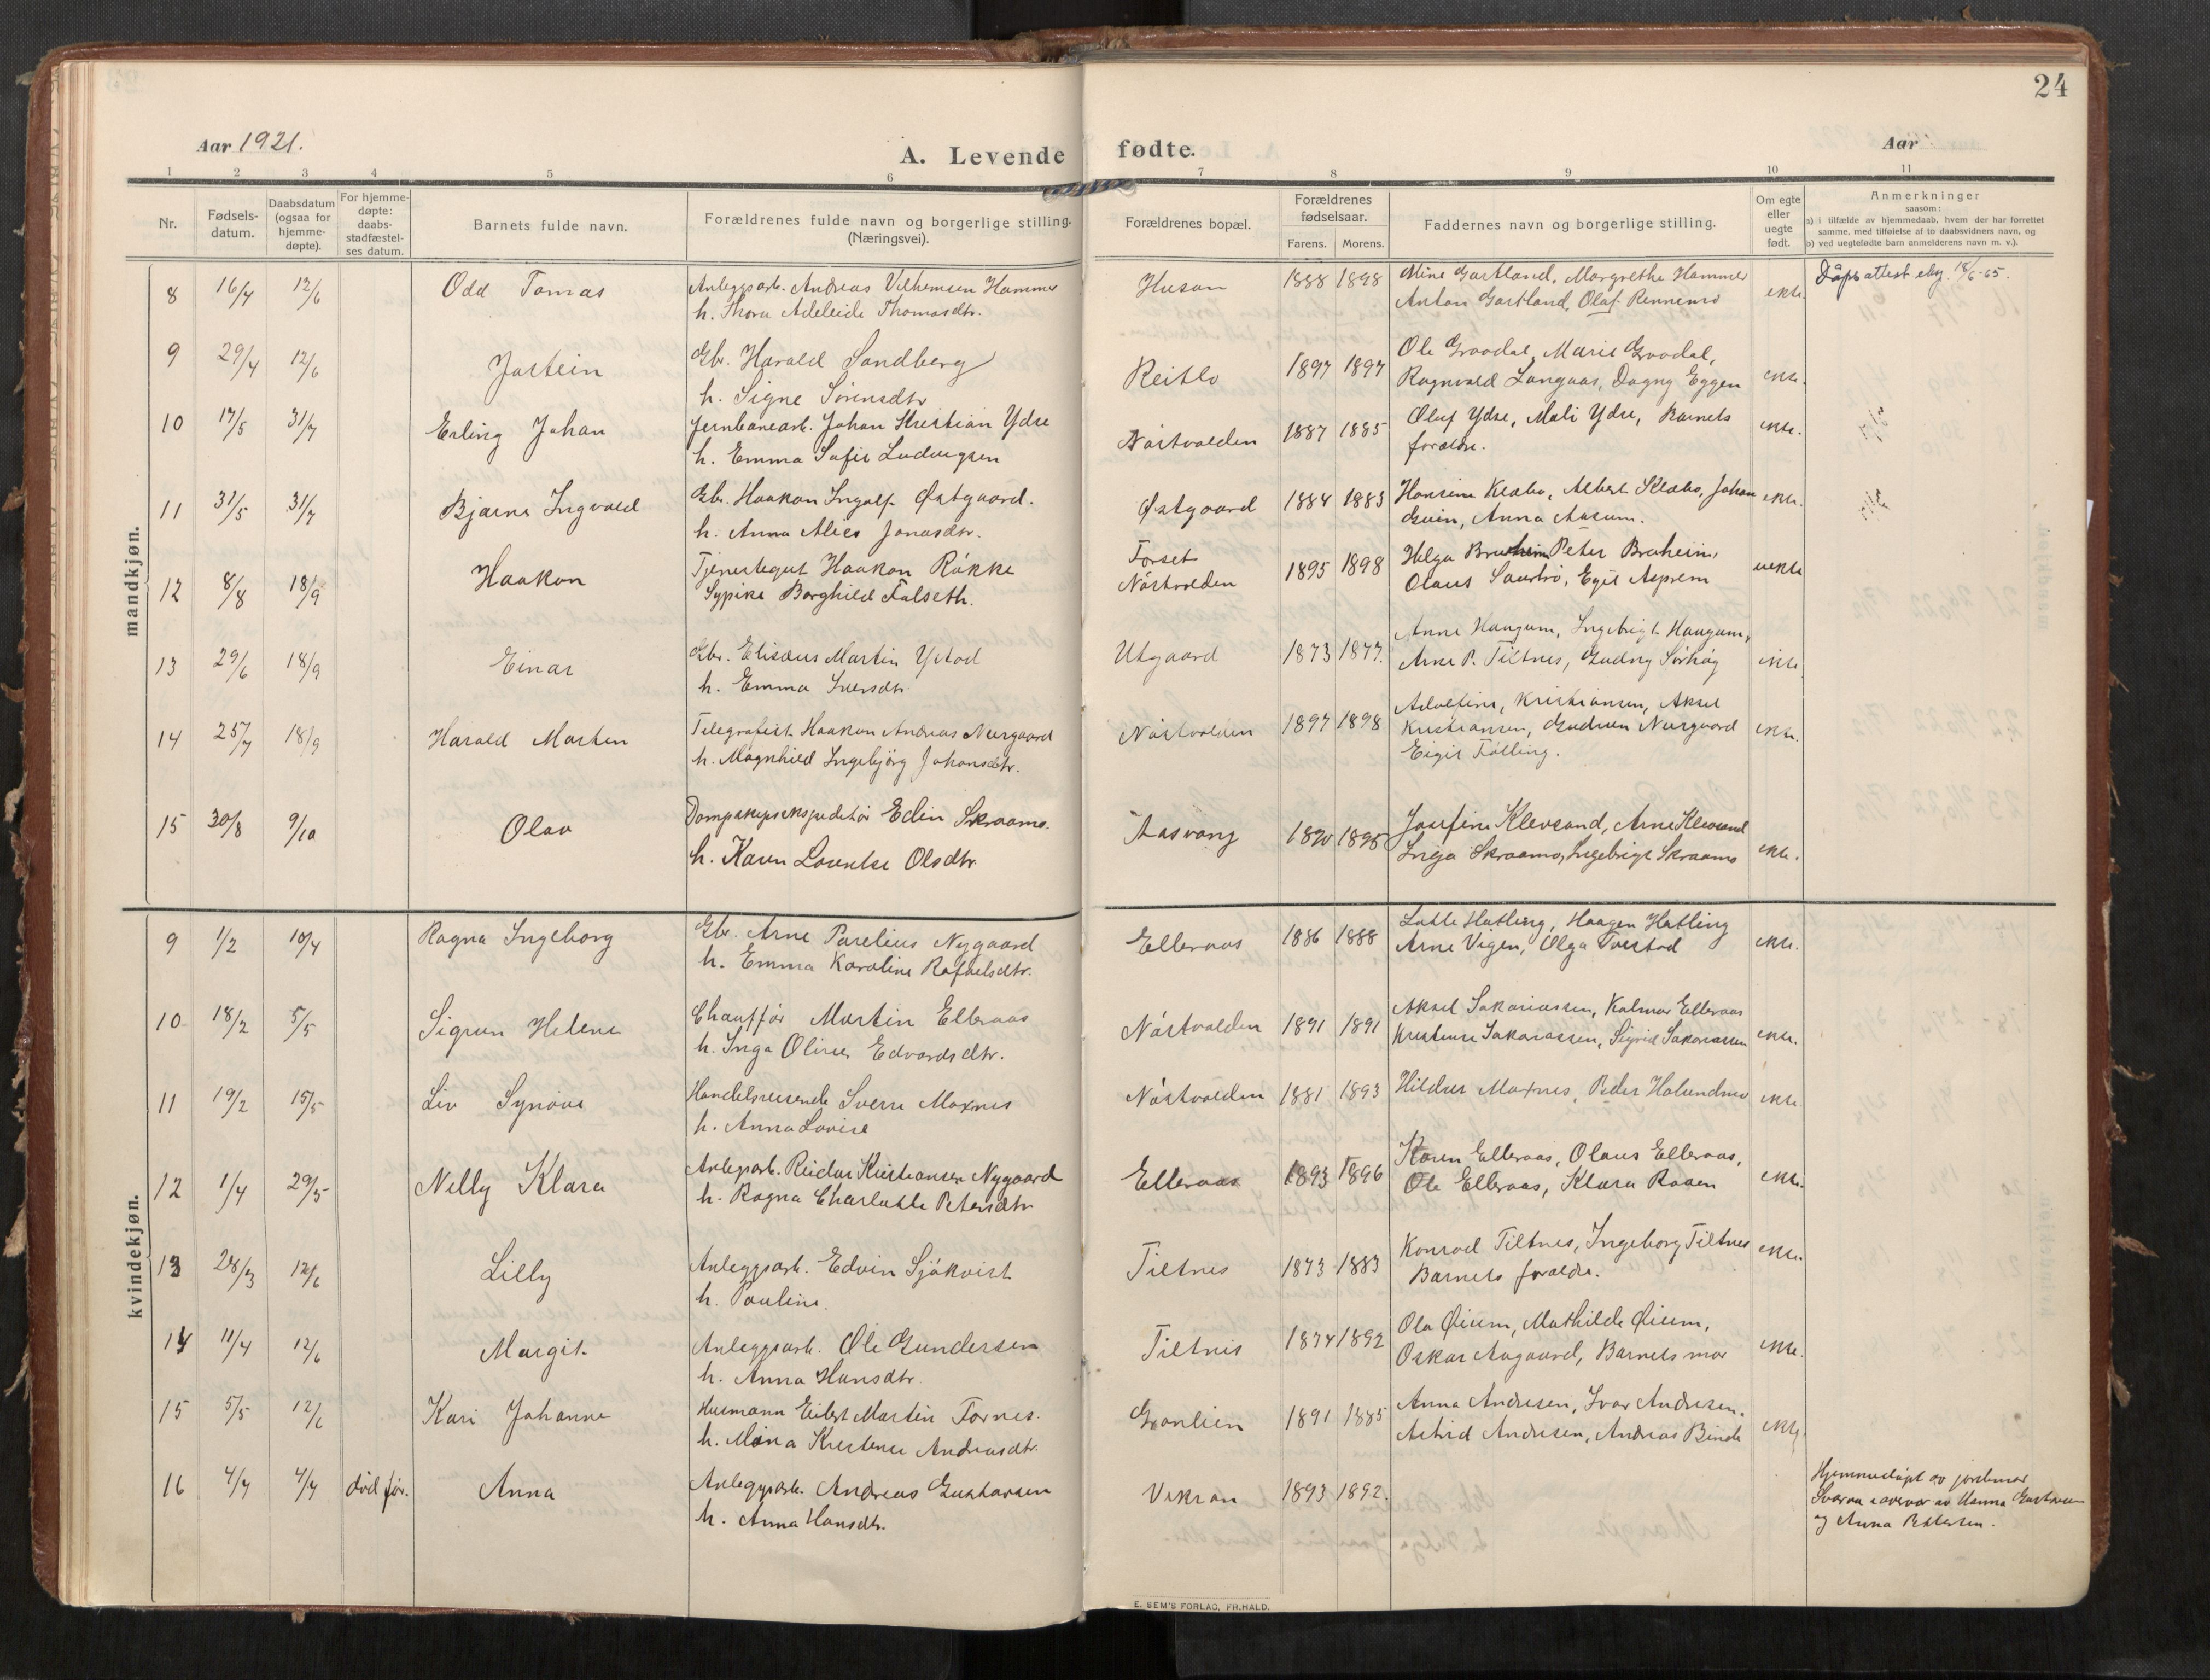 24
Aar 1921.
A. Levende fødte.
Aar
1 2 3 4 5 6 7 8 9 10 11
Nr.
Fødsels-
datum.
Daabsdatum
(ogsaa for
hjemme-
døpte).
For hjemme-
døpte:
daabs-
stadfæstel-
ses datum.
Barnets fulde navn.
Forældrenes fulde navn og borgerlige stilling.
(Næringsvei).
Forældrenes bopæl.
Forældrenes
fødselsaar.
Farens. Morens.
Faddernes navn og borgerlige stilling.
Om egte
eller
uegte
født.
Anmerkninger
saasom:
a) i tilfælde av hjemmedaab, hvem der har forrettet
samme, med tilføielse af to daabsvidners navn, og
b) ved uegtefødte barn anmelderens navn m. v.).
mandkjøn.
8 16/4 12/6 Odd Tomas Anleggsarb. Andreas Vilhemsen Hammer Husan 1888 1898 Mine Gartland, Margrethe Hammer ekte. Dåpsattest ekg. 18/6-65.
h. Thora Adeleide Thomasdtr. Anton Gartland, Olaf Rennemo
9 29/4 12/6 Jostein Gbr. Harald Sandberg Reitlo 1897 1897 Ole Groodal, Marie Groodal, ekte.
h. Signe Sørensdtr Ragnvald Langaas, Dagny Eggen
10 17/5 31/7 Erling Johan Jernbanearb. Johan Kristian Ydse Nåstvolden 1887 1885 Oluf Ydse, Mali Ydse, Barnets ekte.
h. Emma Sofie Ludvigsen forældre.
11 31/5 31/7 Bjarne Ingvald Gbr. Haakon Ingolf Østgaard. Østgaard 1884 1883 Hansine Klæbo, Albert Klæbo, Johan ekte.
h. Anna Alice Jonasdtr. Gvin, Anna Aasum.
12 8/8 18/9 Haakon Tjenestegut Haakon Råkke Forset 1895 1898 Helga Bruheim Peter Bruheim, uekte
Sypike Borghild Falseth. Nåstvolden Olaus Saursbø, Egil Asprem
13 29/6 18/9 Einar Gbr. Elisæus Martin Ystad Utgaard 1873 1877. Anna Haugum, Ingebrigt Haugum, ekte
h. Emma Iversdtr. Arne P. Tiltnes, Gudny Sørhøg
14 25/7 18/9 Harald Morten Telegrafist Haakon Andreas Neergaard Nåstvolden 1897 1898 Adolfine, Kristiansen, Aksel ekte.
h. Magnhild Ingebjørg Johansdtr. Kristiansen, Gudrun Neergaard
Eigil Følling.
15 30/8 9/10 Olav Dampskipsekspeditør Edin Skraamo. Aasvang 1890 1895 Josefine Klevsand, Arne Klevsand ekte.
h. Karen Lorentse Olsdtr. Inga Skraamo, Ingebrigt Skraamo
kvindekjøn.
9 1/2 10/4 Ragna Ingeborg Gbr. Arne Parelius Nygaard Elleraas 1886 1888 Lotte Hatling, Haagen Hatling ekte.
h. Emma Karoline Rafaelsdtr. Arne Vigen, Olga Tvestad
10 18/2 5/5 Sigrun Helene Chauffør Martin Elleraas Nåstvolden 1891 1891 Aksel Sakariassen, Kalmar Elleraas ekte.
h. Inga Oline Edvardsdtr. Kristense Sakariassen, Sigrid Sakariassen
11 19/2 15/5 Liv Synøve Handelsreisende Sverre Moxnes Nåstvolden 1881 1893 Hildur Moxnes, Peder Halundmo ekte.
h. Anna Lovise
12 1/4 29/5 Nelly Klara Anlegsarb. Reidar Kristiansen Nygaard Elleraas 1893 1896 Karen Elleraas, Olaus Elleraas, ekte.
h. Ragna Charlotte Petersdtr Ole Elleraas, Klara Raaen
13 28/3 12/6 Lilly Anleggsarb. Edvin Sjökvist Tiltnes 1873 1883 Konrad Tiltnes, Ingeborg Tiltnes ekte.
h. Pauline. Barnets forældre.
14 11/4 12/6 Margit Anleggsarb. Ole Gundersen Tiltnes 1874 1892 Ola Øium, Mathilde Øium, ekte.
h. Anna Hansdtr. Oskar Aagaard, Barnets mor
15 5/5 12/6 Kari Johanne Husmann Eilert Martin Fornes. Granlien 1891 1885 Anna Andresen, Ivar Andresen. ekte.
h. Mina Kristense Andreasdtr. Astrid Andresen, Andreas Binde
16 4/7 4/7 död før. Anna Anleggsarb. Andreas Gustavsen Vekran 1893 1892. Hjemmedøpt av jordmor
h. Anna Hansdtr. Svarva i overvær av Hanna Gustavsen
og Anna Pettersen.
E. SEM'S FORLAG, FR.HALD.